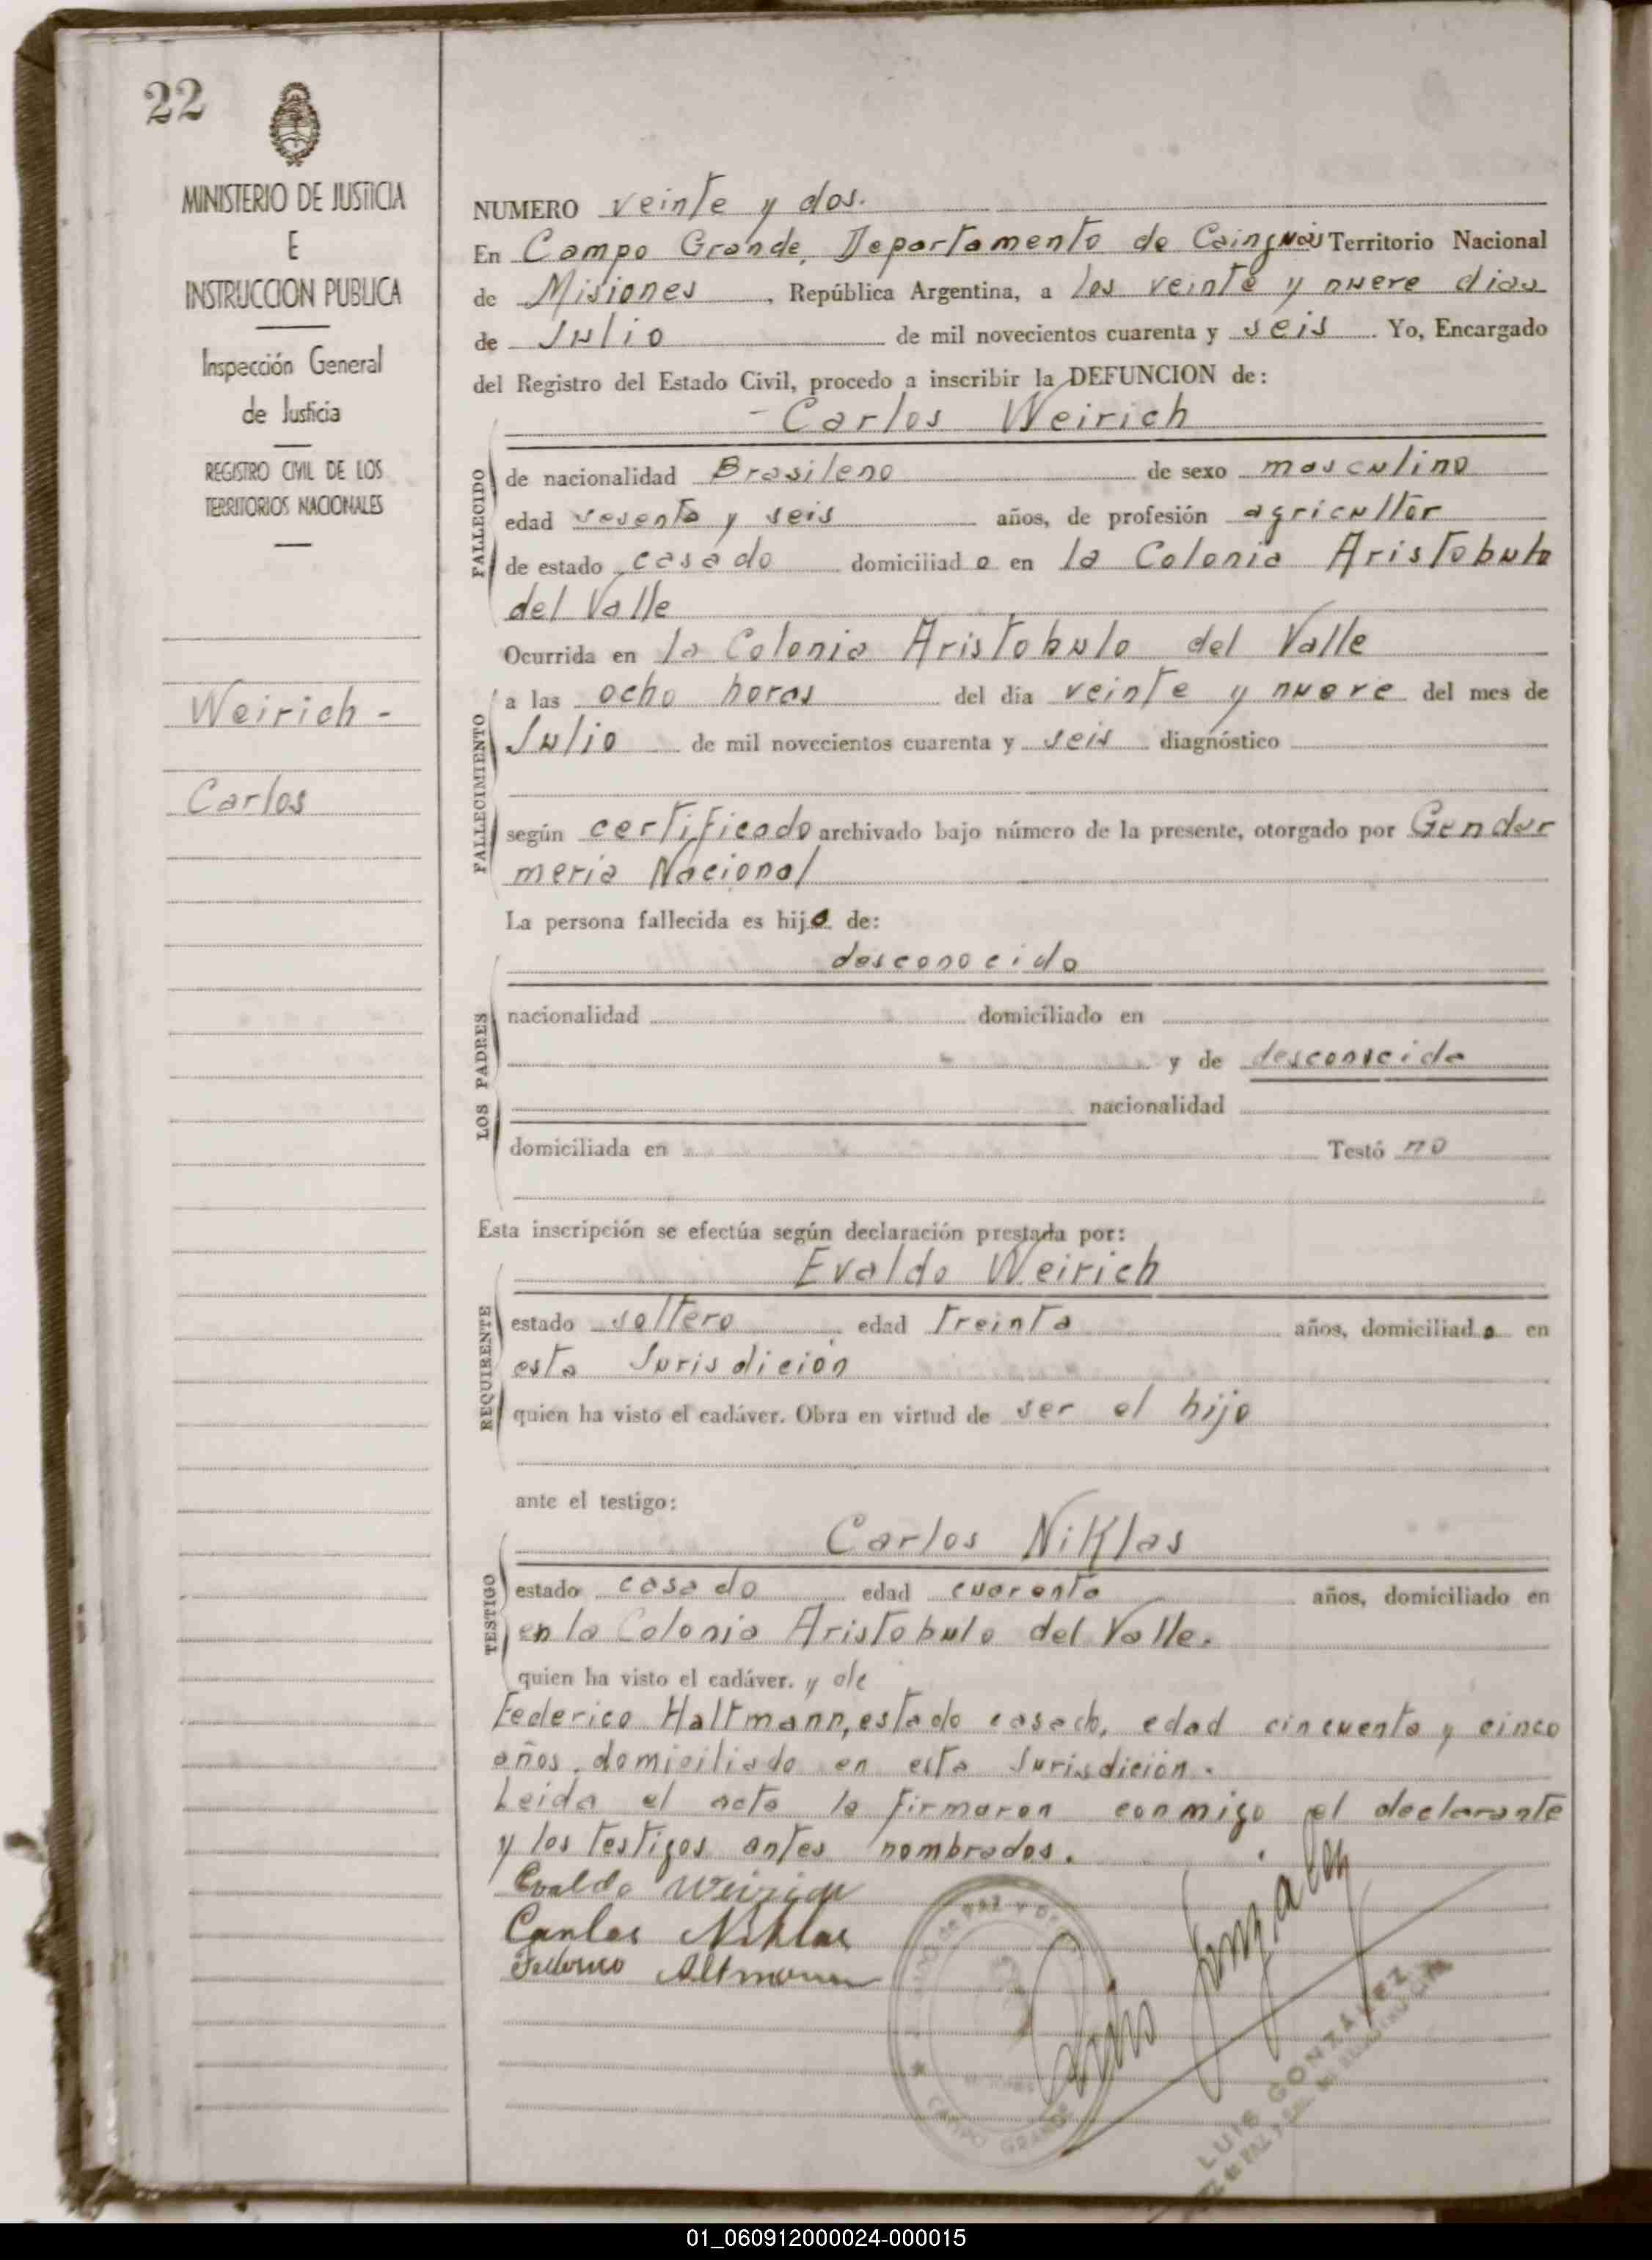 22
MINISTERIO DE JUSTICIA
E
INSTRUCCION PUBLICA
Inspección General
de Justicia
REGISTRO CIVIL DE LOS
TERRITORIOS NACIONALES
Weirich -
Carlos
NUMERO veinte y dos.
En Campo Grande, Departamento de Cainguás Territorio Nacional
de Misiones, República Argentina, a los veinte y nueve dias
de Julio de mil novecientos cuarenta y seis. Yo, Encargado
del Registro del Estado Civil, procedo a inscribir la DEFUNCION de:
- Carlos Weirich
FALLECIDO
de nacionalidad Brasileno de sexo masculino
edad sesenta y seis años, de profesión agricultor
de estado casado domiciliado en la Colonia Aristobulo
del Valle
Ocurrida en la Colonia Aristobulo del Valle
FALLECIMIENTO
a las ocho horas del día veinte y nueve del mes de
Julio de mil novecientos cuarenta y seis diagnóstico
según certificado archivado bajo número de la presente, otorgado por Gendar
meria Nacional
La persona fallecida es hijo de:
desconocido
LOS PADRES
nacionalidad domiciliado en
y de desconocida
nacionalidad
domiciliada en Testó no
Esta inscripción se efectúa según declaración prestada por:
Evaldo Weirich
REQUIRENTE
estado soltero edad treinta años, domiciliado en
esta Jurisdición
quien ha visto el cadáver. Obra en virtud de ser el hijo
ante el testigo:
Carlos Niklas
TESTIGO
estado casado edad cuarenta años, domiciliado en
en la Colonia Aristobulo del Valle.
quien ha visto el cadáver. y de
Federico Haltmann, estado casado, edad cincuenta y cinco
años, domiciliado en esta Jurisdición.
Leida el acta la firmaron conmigo el declarante
y los testigos antes nombrados.
Evaldo Weirich
Carlos Niklas
Federico Altmann
Luis González
CAMPO GRANDE
LUIS GONZÁLEZ
01_060912000024-000015